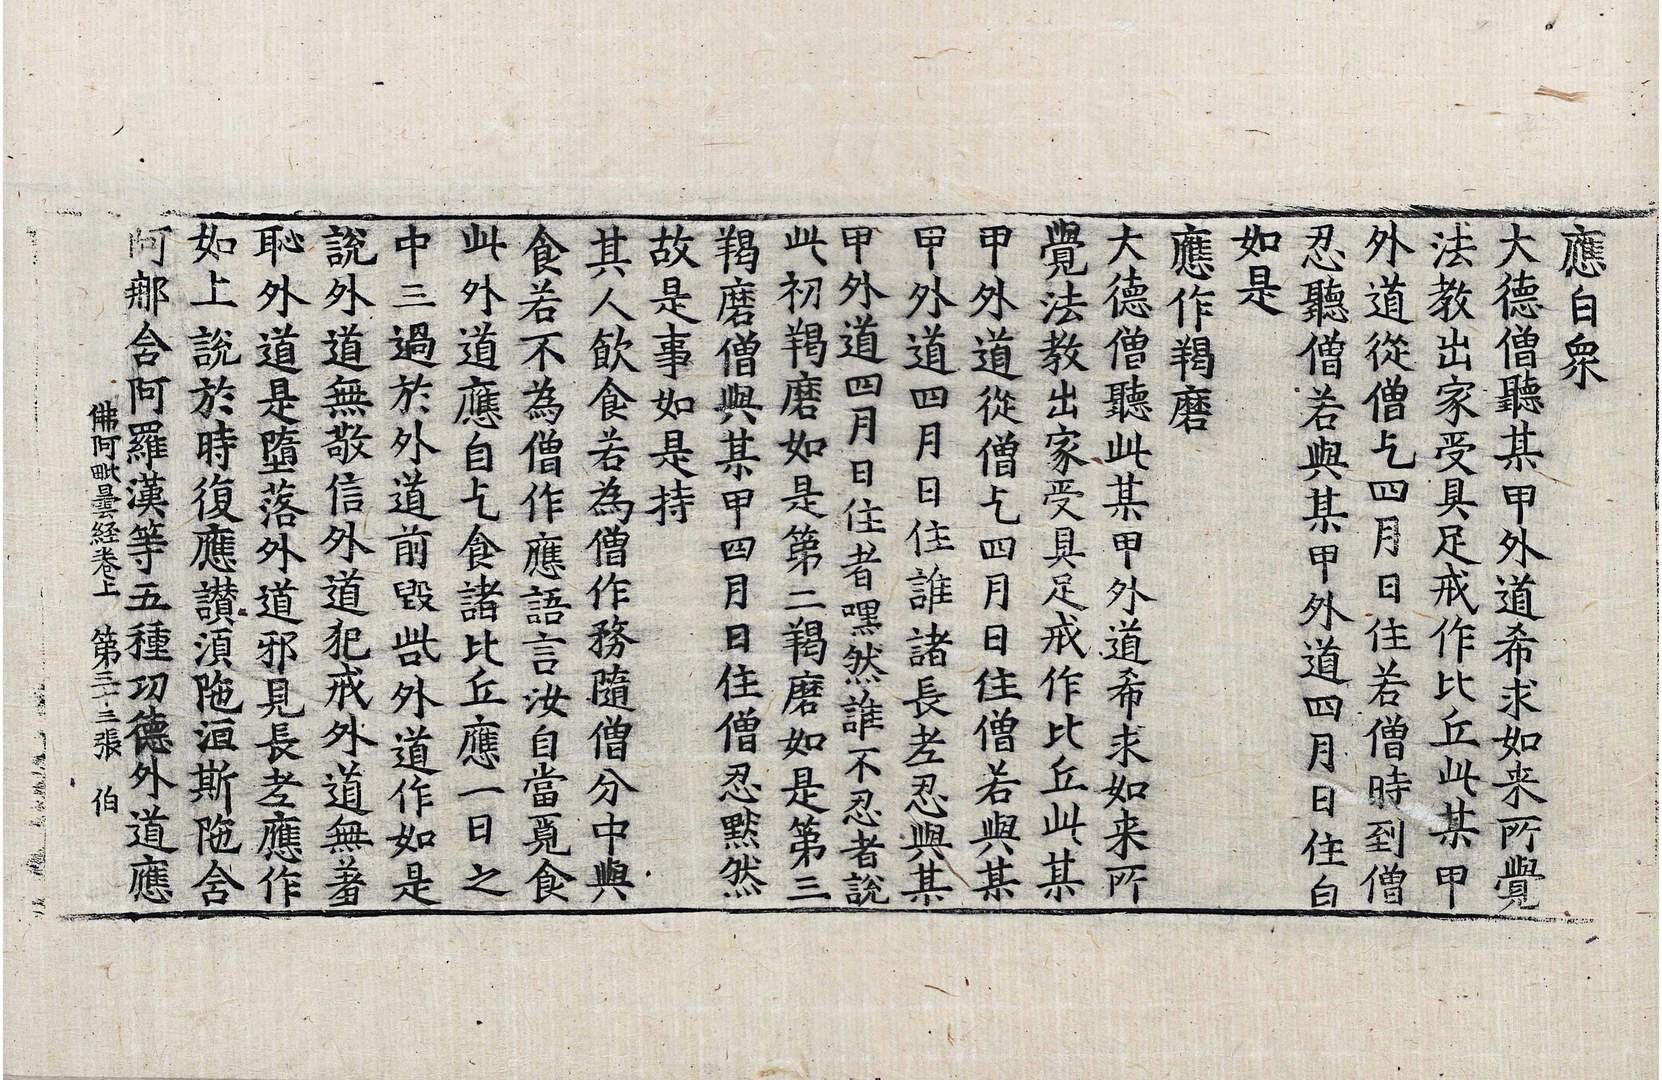 應白衆
大德僧聽某甲外道希求如来所覺
法教出家受具足戒作比丘此某甲
外道從僧乞四月日住若僧時到僧
忍聽僧若與某甲外道四月日住白
如是
應作羯磨
大德僧聽此某甲外道希求如来所
覺法教出家受具足戒作比丘此某
甲外道從僧乞四月日住僧若與某
甲外道四月日住誰諸長老忍與某
甲外道四月日住者嘿然誰不忍者說
此初羯磨如是第二羯磨如是第三
羯磨僧與某甲四月日住僧忍黙然
故是事如是持
其人飲食若為僧作務隨僧分中與
食若不為僧作應語言汝自當覓食
此外道應自乞食諸比丘應一日之
中三過於外道前毀呰外道作如是
說外道無敬信外道犯戒外道無羞
恥外道是墮落外道邪見長老應作
如上說於時復應讃湏陁洹斯陁含
阿那含阿羅漢等五種功德外道應
佛阿毗曇経卷上 第三十三張 伯